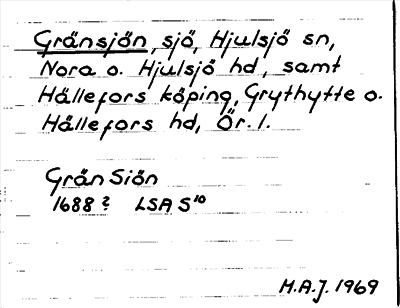 Gränsjön, sjö, Hjulsjö sn,
Nora o. Hjulsjö hd, samt
Hällefors köping, Grythytte o.
Hällefors hd, Ör. l.
Grän Siön
1688 ? LSA S¹⁰
H.A.J. 1969